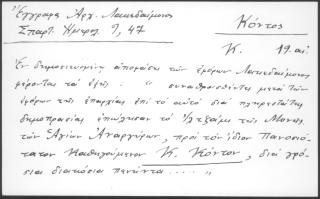 Έγγραφα Αρχ. Λακεδαίμονος
Σπαρτ. Ημερολ. 9, 47
Κόντος
Κ. 19. αἰ
Ἐν δημοσιευομένῃ ἀποφάσει τῶν ἐφόρων Λακεδαίμονος
φέρονται τὰ ἑξῆς: « συναθροισθέντες μετὰ τῶν
ἐφόρων τῆς ἐπαρχίας ἐπὶ τὸ αὐτὸ διὰ πληρεστάτης
δημοπρασίας ἐπώλησαν τὸ ἰλτιζάμι τῆς Μονῆς
τῶν Ἁγίων Ἀναργύρων, πρὸς τὸν ἴδιον Πανοσιώ-
τατον Καθηγούμενον Κ. Κόντον, διὰ γρό-
σια διακόσια πενήντα ..... »